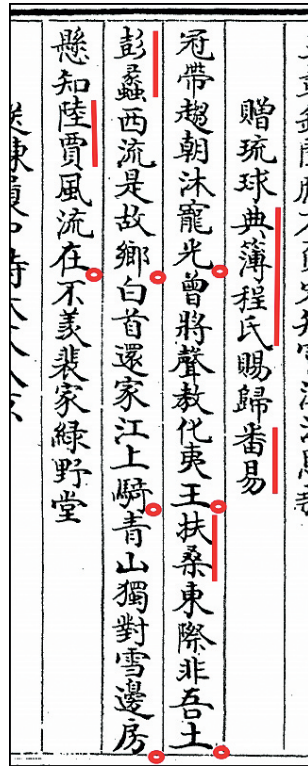 贈琉球典簿程氏賜歸番易
冠帶趨朝沐寵光曾將聲教化夷王扶桑東際非吾土
彭蠡西流是故鄉白首還家江上騎青山獨對雪邊房
懸知陸賈風流在不羨裴家緑野堂